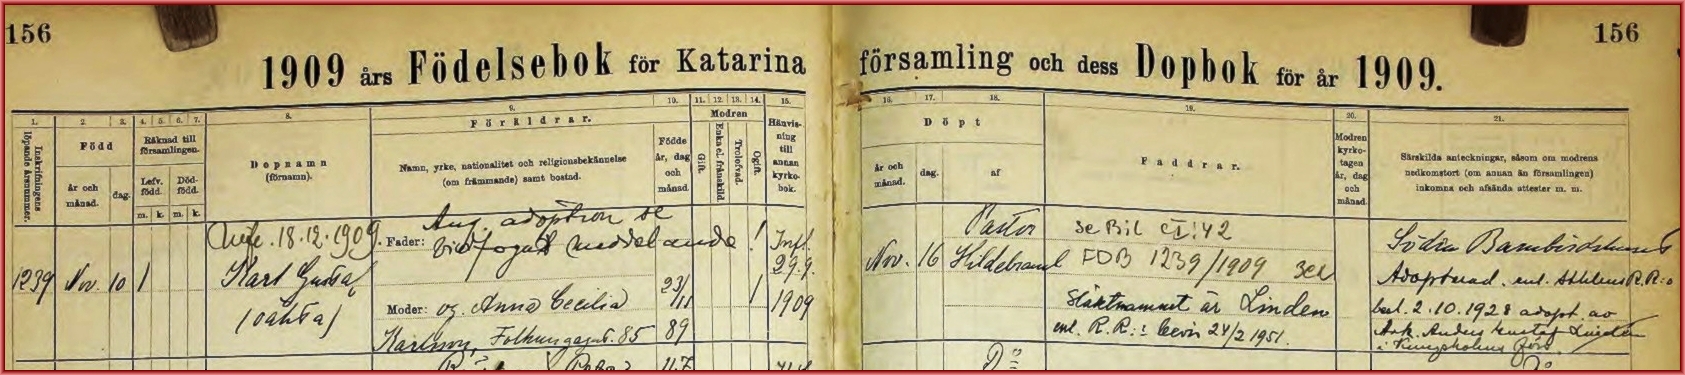 156
156
1909 års Födelsebok för Katarina församling och dess Dopbok för år 1909.
1. 2. 3. 4. 5. 6. 7. 8. 9. 10. 11. 12. 13. 14. 15. 16. 17. 18. 19. 20. 21.
Inskrifningens löpande årsnummer.
Född
År och månad.
dag.
Räknad till församlingen.
Lefv. född.
Död-född.
m. k. m. k.
Dopnamn
(förnamn).
Föräldrar.
Namn, yrke, nationalitet och religionsbekännelse
(om främmande) samt bostad.
Födde År, dag och månad.
Modren
Gift.
Enka el. frånskild.
Trolofvad.
Ogift.
Hänvis-ning till annan kyrko-bok.
Döpt
År och månad.
dag.
af
Faddrar.
Modren kyrko-tagen År, dag och månad.
Särskilda anteckningar, såsom om modrens
nedkomstort (om annan än församlingen)
inkomna och afsända attester m. m.
18.12.1909.
Ang. adoption se
Fader: meddelande
1239 Nov. 10 1
Karl Gustaf
(oäkta)
Moder: og. Anna Cecilia
Karlsson, Folkungagat. 85
23/11
89
1
Infl.
29.9.
1909
Nov. 16
Pastor
Hildebrand
se Bil CI:42
FDB 1239/1909
Släktnamnet är Linden
enl. R.R:s bevis 24/2 1951.
Södra Barnbördshuset
Adopterad enl. R.R:s
besl. 2.10.1928 adopt. av
Gustaf Linden
i Kungsholms förs.